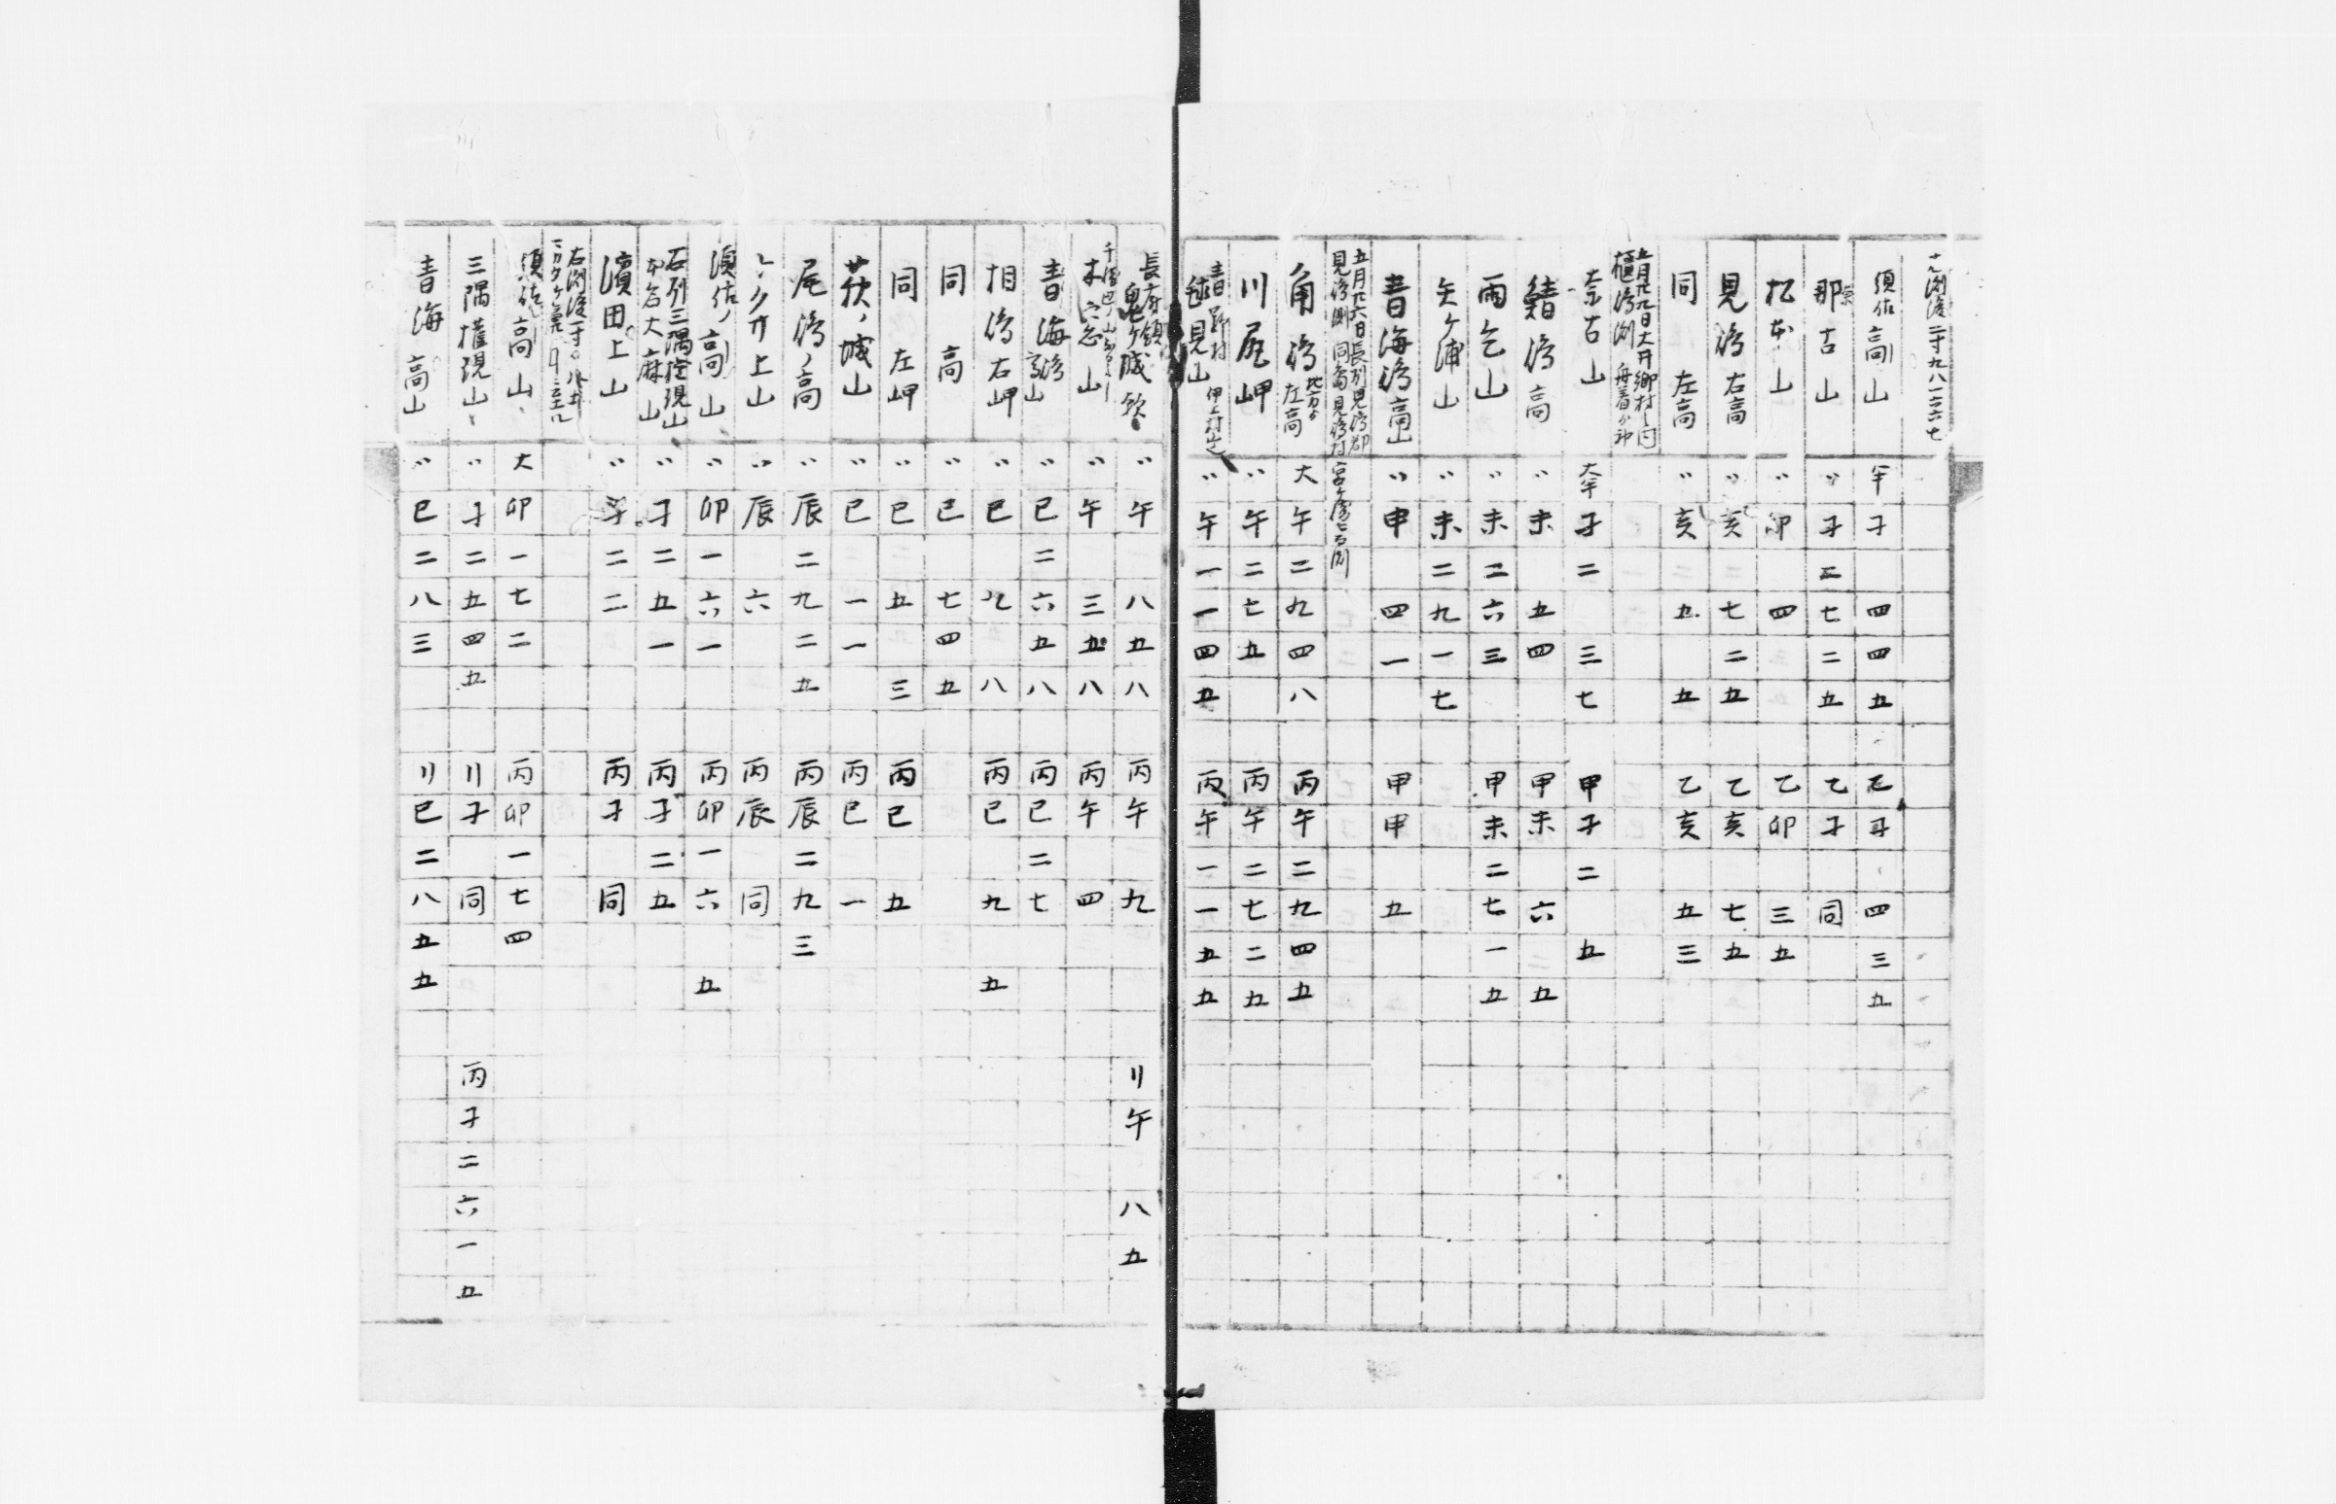 須佐高山 午 子 四四五 乙子 四三五
那古山 〃 子二七二五 乙子 同
松本山 〃 卯 四 乙卯 三五
見嶋右高 〃 亥 七二五 乙亥 七五
同 左高 〃 亥 五 五 乙亥 五三
五月廿九日大井郷村ノ内
櫃嶋測
奈古山 大半 子二 三七 甲子二 五
鯖嶋高 〃 未 五四 甲未 六 五
雨乞山 〃 未二六三 甲未二七一五
矢ヶ浦山 〃 未二九一七
青海嶋高山 〃 申 四一 甲申 五
五月廿六日長列見嶋郡
見嶋測
角嶋 左高 大 午二九四八 丙午二九四五
川尻岬 〃 午二七五 丙午二七二五
〃 午一一四五 丙午一一五五
長府領
鬼ヶ城 〃 午 八五八 丙午 九 〃午 八五
〃 午 三五八 丙午 四
青海嶋高山 〃 巳二六五八 丙巳二七
相嶋右岬 〃 巳 九 八 丙巳 九 五
同 高 〃 巳 七四五
同 左岬 〃 巳 五 三 丙巳 五
萩ノ城山 〃 巳 一一 丙巳 一
尾嶋ノ高 〃 辰二九二五 丙辰二九三
上山 〃 辰 六 丙辰 同
須佐ノ高山 〃 卯一六一 丙卯一六 五
石列三隅権現山
本名大麻山 〃 子二五一 丙子二五
濱田上山 〃 子二二 丙子 同
須佐高山 大 卯一七二 丙卯一七四
三隅権現山 〃 子二五四五 〃子 同 丙子二六一五
青海高山 〃 巳二八三 〃巳二八五五